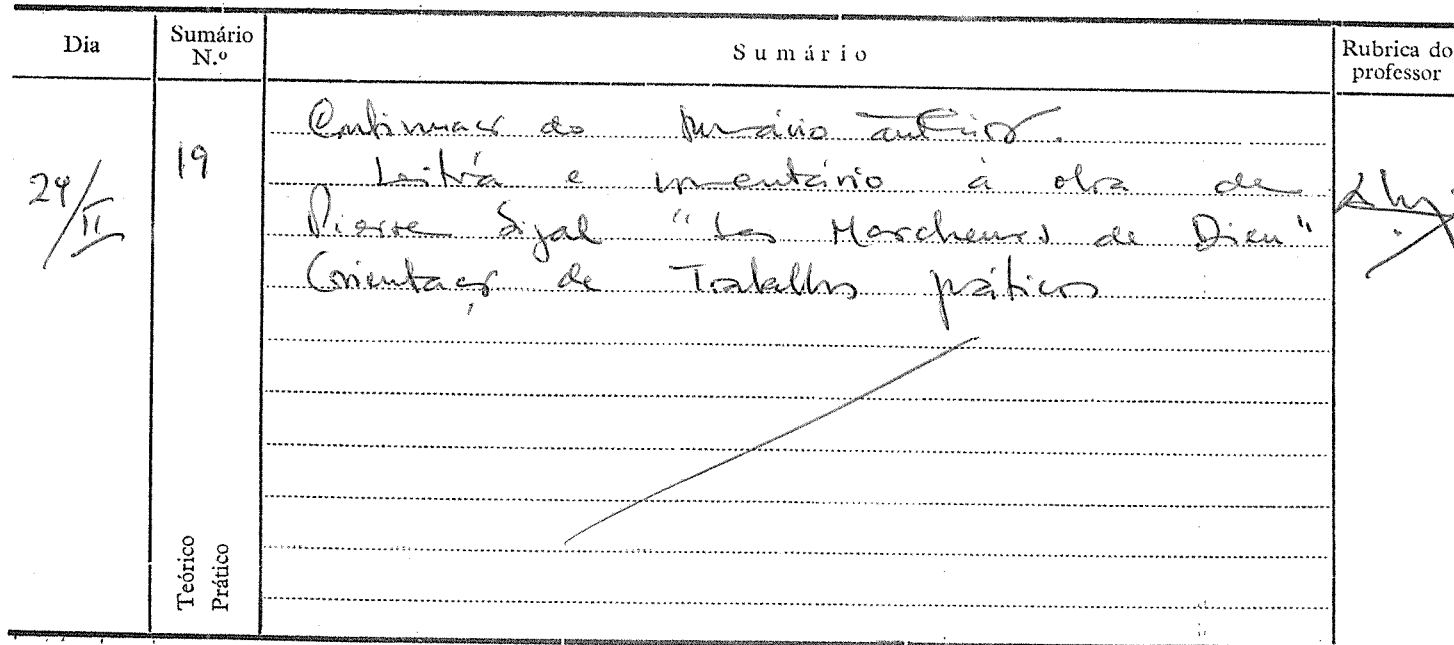 Dia
Sumário N.º
Sumário
Rubrica do professor
24/II
19
Continuação do sumário anterior.
Leitura e comentário à obra de
Pierre Sigal "Les Marcheurs de Dieu"
Orientação de Trabalhos práticos
Teórico
Prático